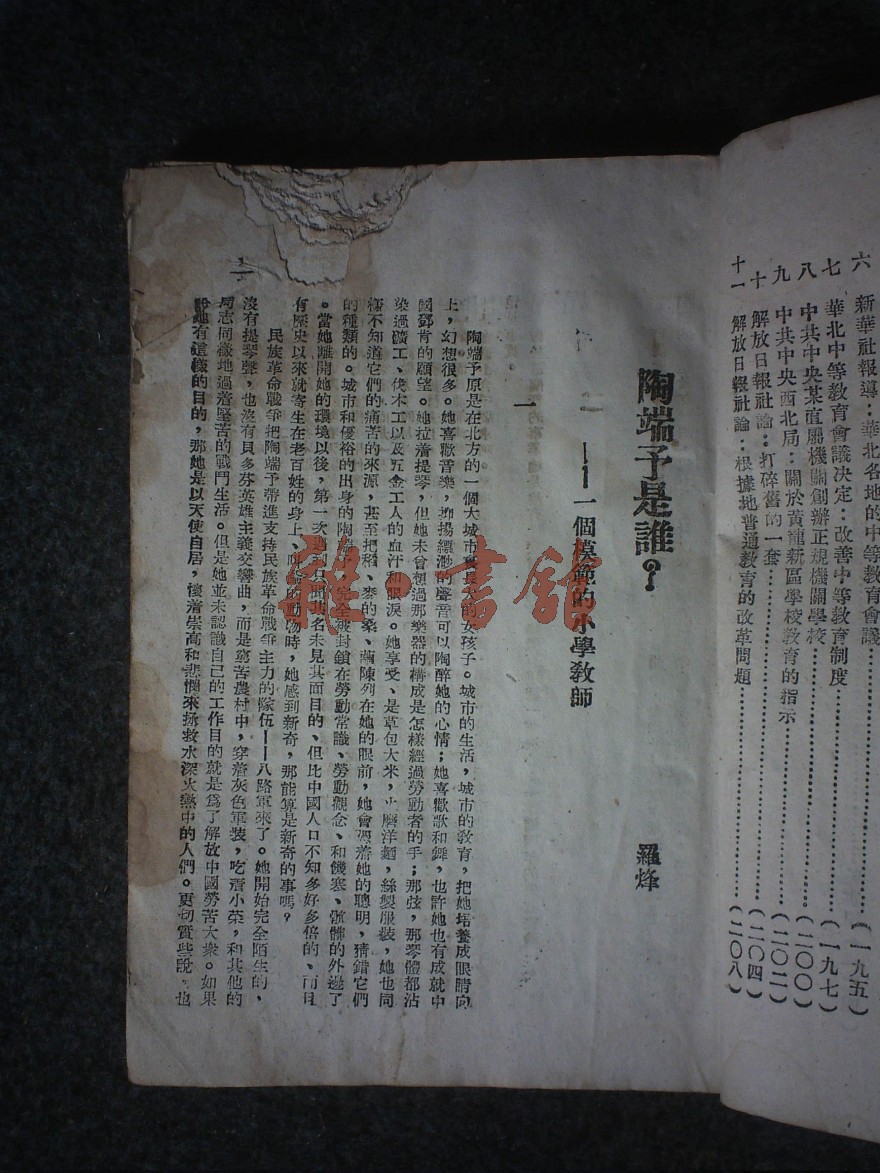 六 新華社報導：華北各地的中等教育會議………………（一九五）
七 華北中等教育會議決定：改善中等教育制度………………（一九七）
八 中共中央某直屬機關創辦正規機關學校………………（二〇〇）
九 中共中央西北局：關於黃龍新區學校教育的指示………………（二〇二）
十 解放日報社論：打碎舊的一套………………（二〇四）
十一 解放日報社論：根據地普通教育的改革問題………………（二〇八）
陶端予是誰？
——一個模範的小學教師
羅烽
一
陶端予原是在北方的一個大城市裏長大的女孩子。城市的生活，城市的教育，把她培養成眼睛向
上，幻想很多。她喜歡音樂，抑揚縹渺的聲音可以陶醉她的心情；她喜歡歌和舞，也許她也有成就中
國鄧肯的願望。她拉着提琴，但她未曾想過那樂器的構成是怎樣經過勞動者的手；那弦，那琴體都沾
染過礦工、伐木工以及五金工人的血汗和眼淚。她享受、是草包大米，火磨洋麵，絲製服裝，她也同
樣不知道它們的痛苦的來源，甚至把稻、麥的 、繭陳列在她的眼前，她會憑着她的聰明，猜錯它們
的種類的。城市和優裕的出身的陶端予，完全被封鎖在勞動常識、勞動觀念、和饑寒、骯髒的外邊了
。當她離開她的環境以後，第一次遇到只聞其名未見其面目的、但比中國人口不知多好多倍的、而且
有歷史以來就寄生在老百姓的身上、 的動物時，她感到新奇，那能算是新奇的事嗎？
民族革命戰爭把陶端予帶進支持民族革命戰爭主力的隊伍——八路軍來了。她開始完全陌生的，
沒有提琴聲，也沒有貝多芬英雄主義交響曲，而是窮苦農村中，穿着灰色軍裝，吃着小菜，和其他的
同志同樣地過着堅苦的戰鬥生活。但是她並未認識自己的工作目的就是爲了解放中國勞苦大衆。如果
說她有這樣的目的，那她是以天使自居，懷着崇高和悲憫來拯救水深火熱中的人們。更切實些說，也
雜·書館